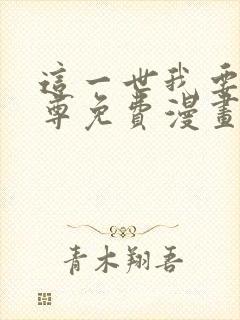 這一世我要
尊免費漫畫
青木翔吾